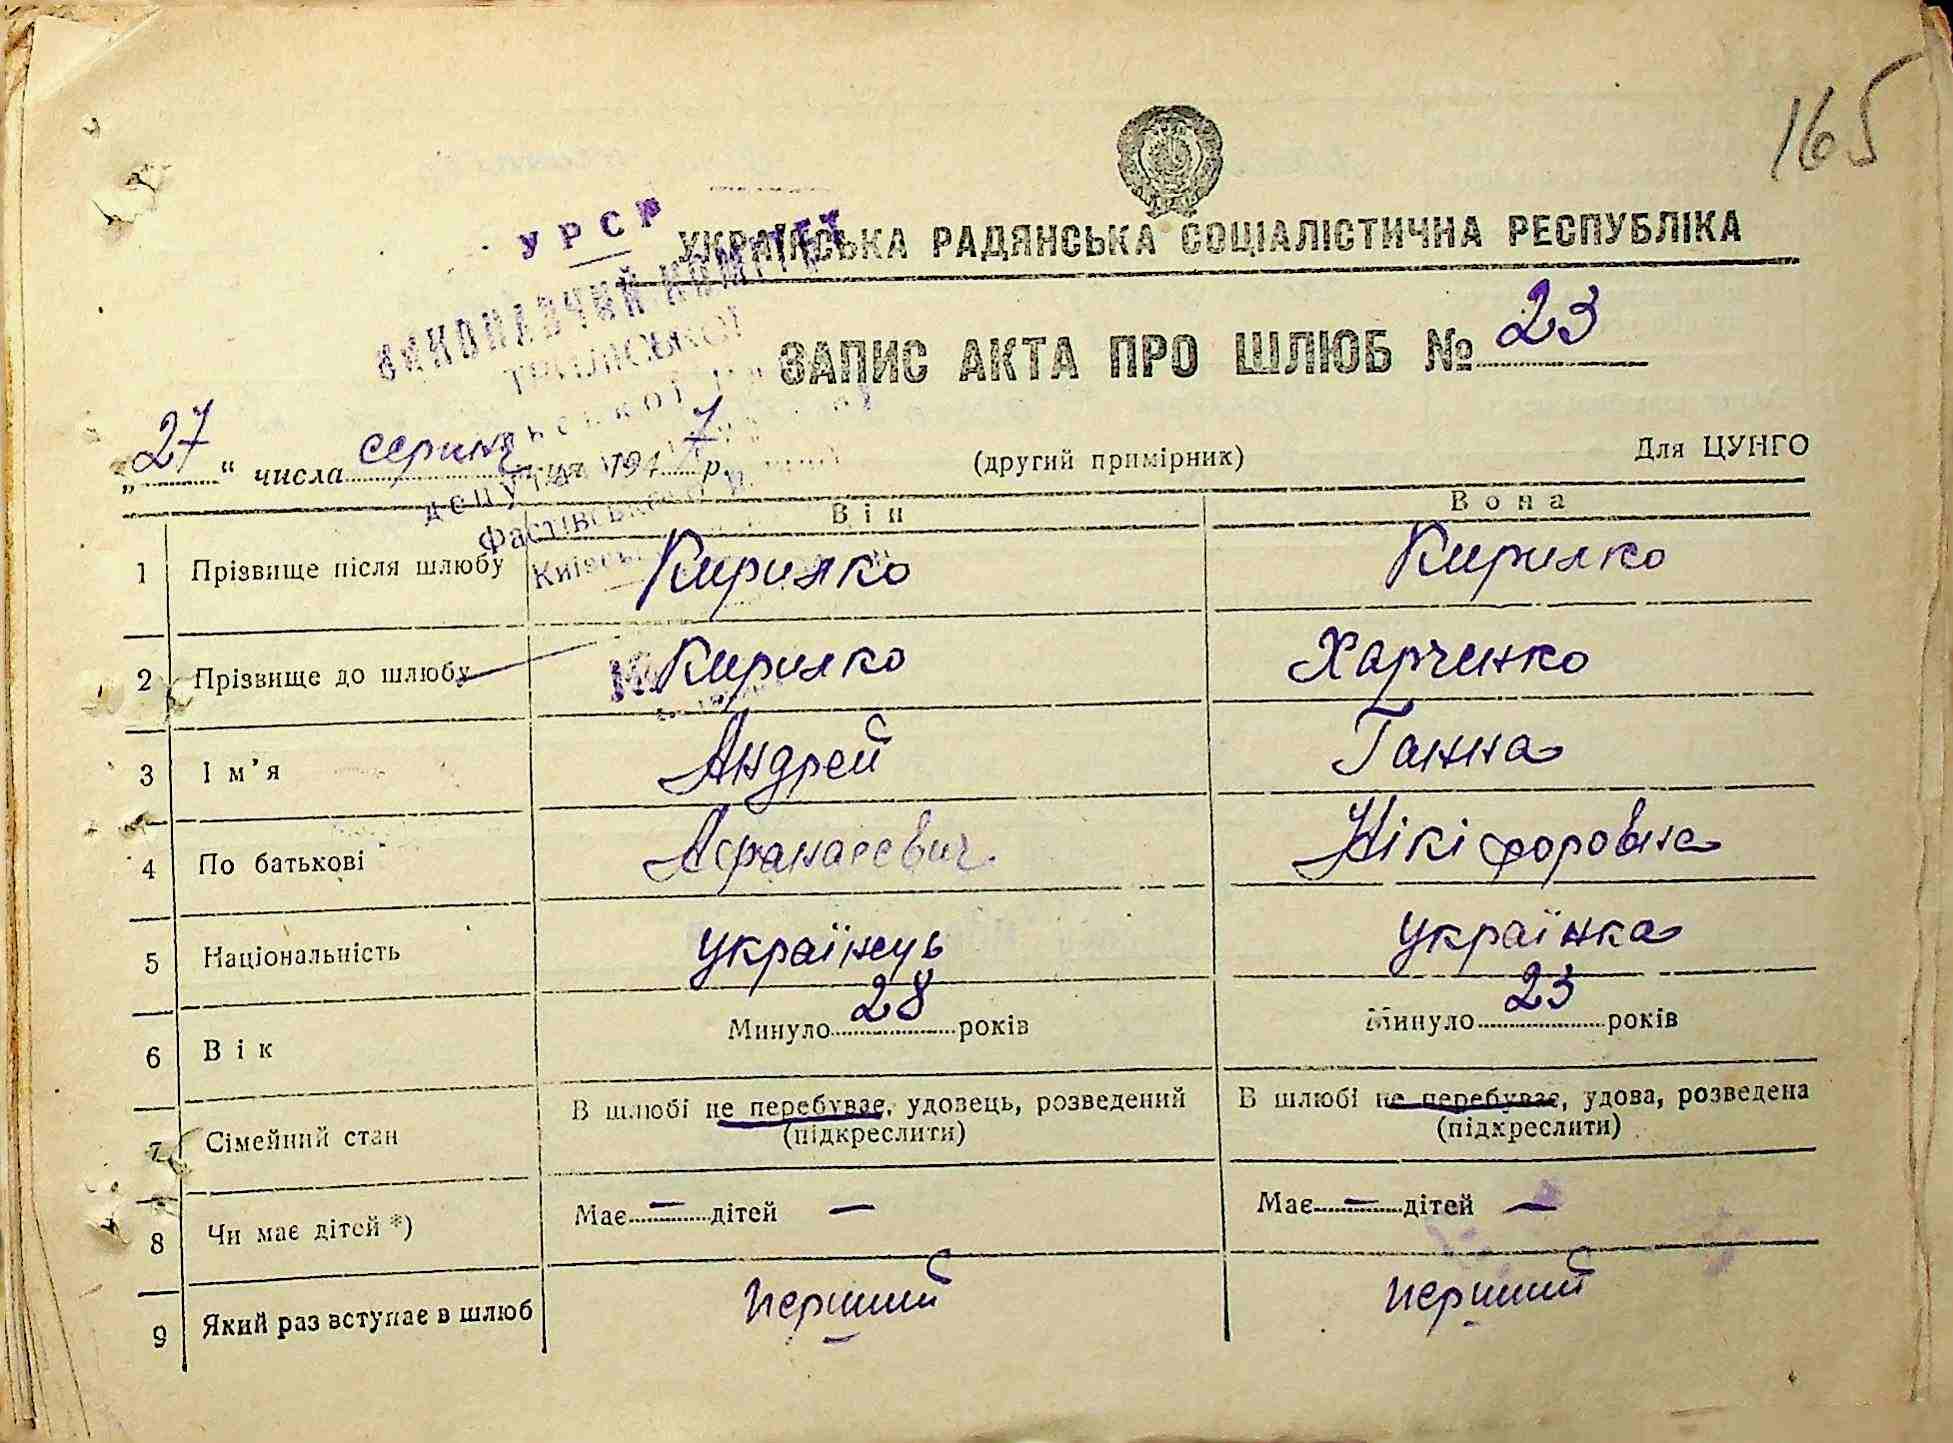 165
УРСР
УКРАЇНСЬКА РАДЯНСЬКА СОЦІАЛІСТИЧНА РЕСПУБЛІКА
ВИКОНАВЧИЙ КОМІТЕТ
ЗАПИС АКТА ПРО ШЛЮБ № 23
„27“ числа серпня 1947 р.
(другий примірник)
Для ЦУНГО
Фастівського
Він
Вона
1 Прізвище після шлюбу Кирилко Кирилко
2 Прізвище до шлюбу Кирилко Харченко
3 Ім'я Андрей Ганна
4 По батькові Афанасевич Нікіфоровна
5 Національність українець українка
6 Вік Минуло 28 років Минуло 23 років
7 Сімейний стан В шлюбі не перебуває, удовець, розведений (підкреслити) В шлюбі не перебуває, удова, розведена (підкреслити)
8 Чи має дітей *) Має — дітей — Має — дітей —
9 Який раз вступає в шлюб перший перший